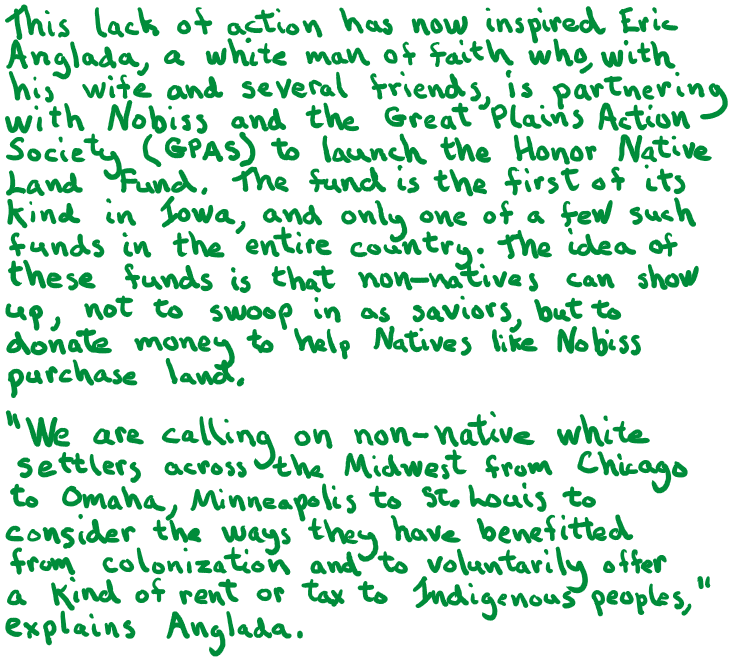 This lack of action has now inspired Eric
Anglada, a white man of faith who, with
his wife and several friends, is partnering
with Nobiss and the Great Plains Action
Society (GPAS) to launch the Honor Native
Land Fund. The fund is the first of its
kind in Iowa, and only one of a few such
funds in the entire country. The idea of
these funds is that non-natives can show
up, not to swoop in as saviors, but to
donate money to help Natives like Nobiss
purchase land.
"We are calling on non-native white
settlers across the Midwest from Chicago
to Omaha, Minneapolis to St. Louis to
consider the ways they have benefitted
from colonization and to voluntarily offer
a kind of rent or tax to Indigenous peoples,"
explains Anglada.